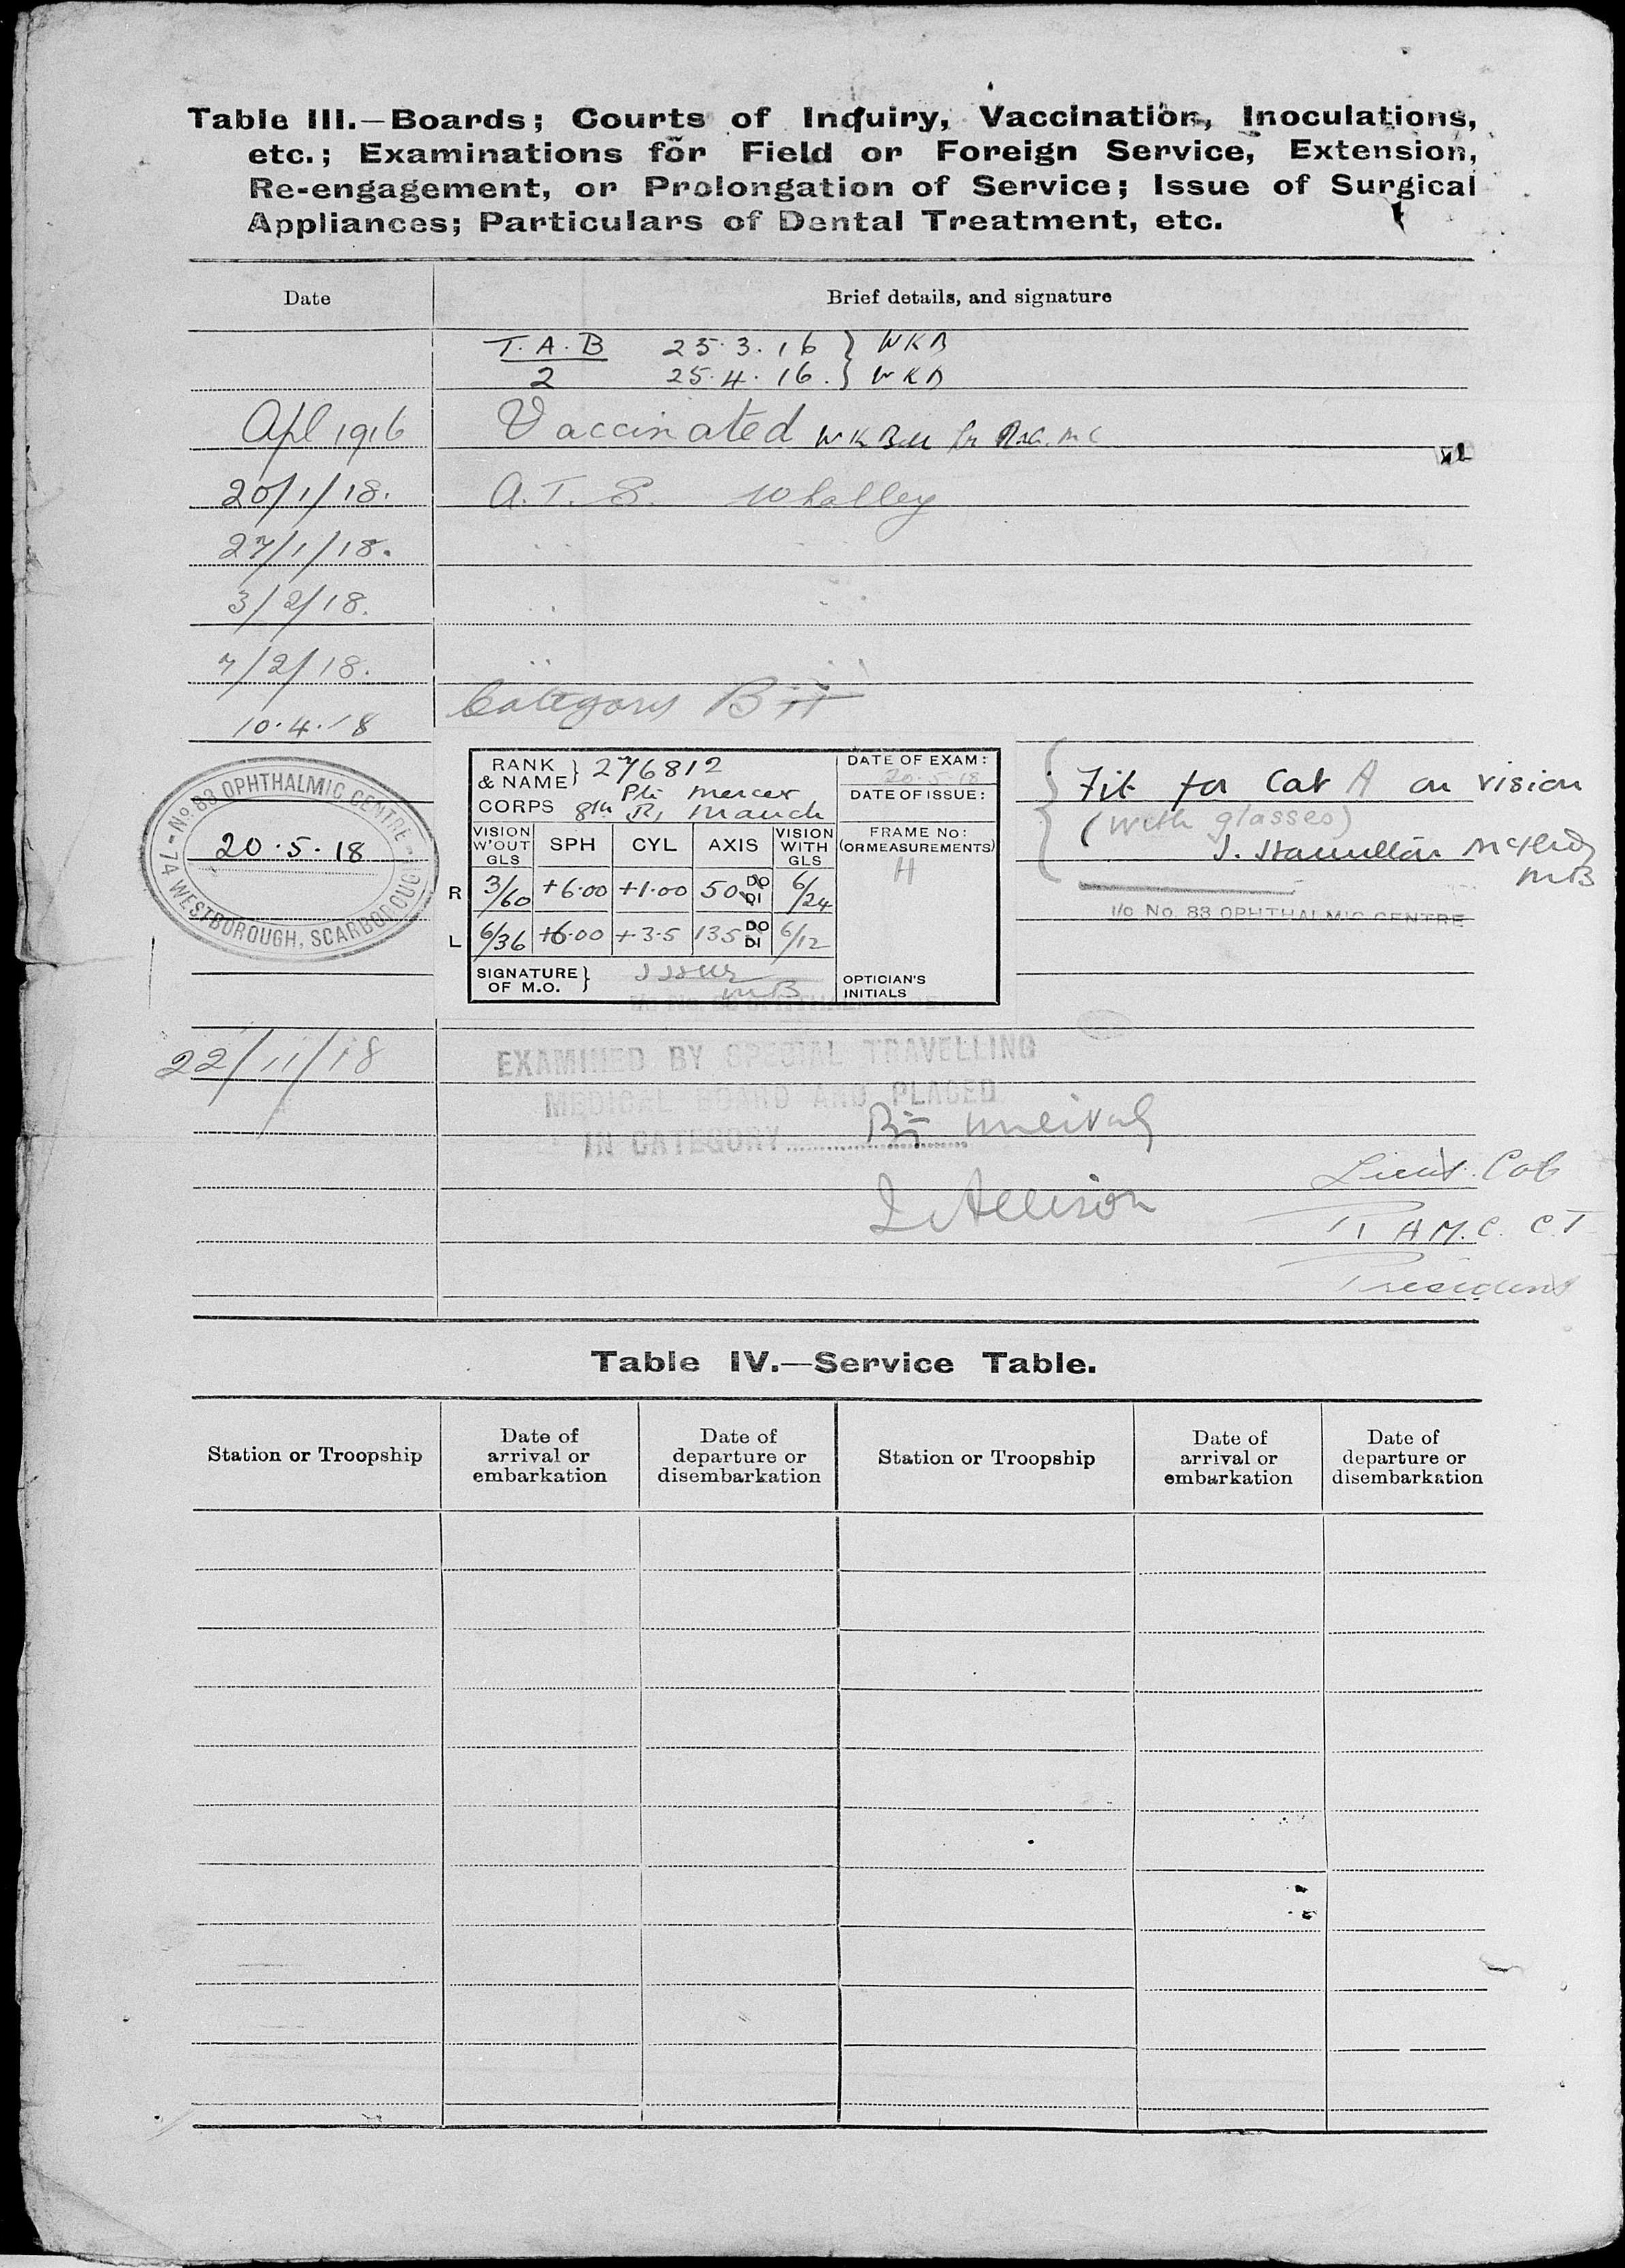 Table III.—Boards; Courts of Inquiry, Vaccination, Inoculations,
etc.; Examinations for Field or Foreign Service, Extension,
Re-engagement, or Prolongation of Service; Issue of Surgical
Appliances; Particulars of Dental Treatment, etc.
Date Brief details, and signature
T.A.B 25.3.16 } WKB
2 25.4.16. } WKB
Apl 1916 Vaccinated W K Bell
20/1/18. A.T.S. Whalley
27/1/18. " "
3/2/18. " "
7/2/18. " "
10.4.18 Category B ii
No 83 OPHTHALMIC CENTRE
20.5.18
74 WESTBOROUGH, SCARBOROUGH
RANK & NAME } 276812
Pte Mercer
CORPS 8th R, Manch
DATE OF EXAM:
20.5.18
DATE OF ISSUE:
VISION W'OUT GLS SPH CYL AXIS VISION WITH GLS FRAME No: (OR MEASUREMENTS)
H
R 3/60 +6.00 +1.00 50 DO DI 6/24
L 6/36 +6.00 +3.5 135 DO DI 6/12
SIGNATURE OF M.O. }
MB
OPTICIAN'S INITIALS
Fit for Cat A on vision
(with glasses)
J. Hamilton
MB
I/o No. 83 OPHTHALMIC CENTRE
22/11/18 EXAMINED BY SPECIAL TRAVELLING
MEDICAL BOARD AND PLACED
IN CATEGORY B ii
Allison
Lieut. Col
R.A.M.C. C.T
President
Table IV.—Service Table.
Station or Troopship Date of arrival or embarkation Date of departure or disembarkation Station or Troopship Date of arrival or embarkation Date of departure or disembarkation